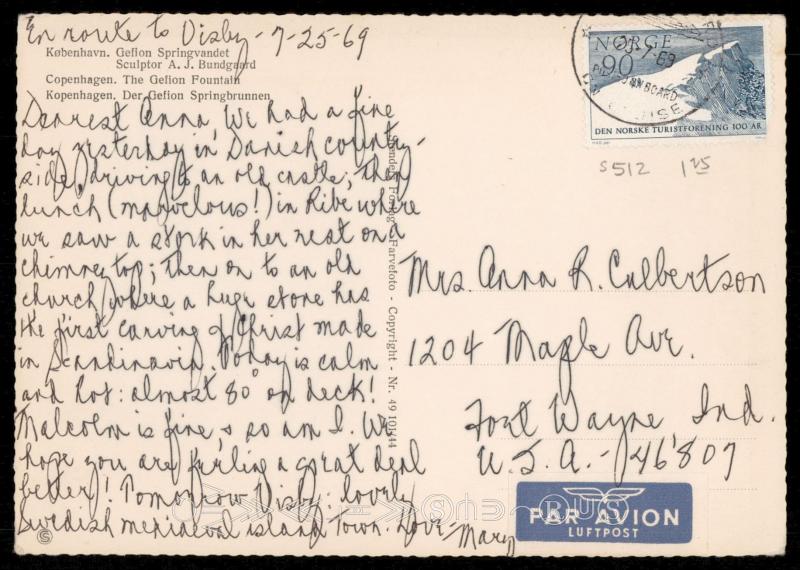 En route to Visby - 7-25-69
København. Gefion Springvandet
Sculptor A. J. Bundgaard
Copenhagen. The Gefion Fountain
Kopenhagen. Der Gefion Springbrunnen
Dearest Anna, We had a fine
day yesterday in Danish country-
side, driving to an old castle; then
lunch (marvelous!) in Ribe where
we saw a stork in her nest on a
chimney top; then on to an old
church where a huge stone has
the first carving of Christ made
in Scandinavia. Today is calm
and hot: almost 80° on deck!
Malcolm is fine, & so am I. We
hope you are feeling a great deal
better! Tomorrow Visby: lovely
Swedish mediaeval island town. Love - Mary
Stenders Forlag - Farvefoto - Copyright - Nr. 49 101/444
NORGE
90
DEN NORSKE TURISTFORENING 100 ÅR
7-69
ON BOARD
S512 1 25
Mrs. Anna R. Culbertson
1204 Maple Ave.
Fort Wayne Ind.
U.S.A. - 46807
PAR AVION
LUFTPOST